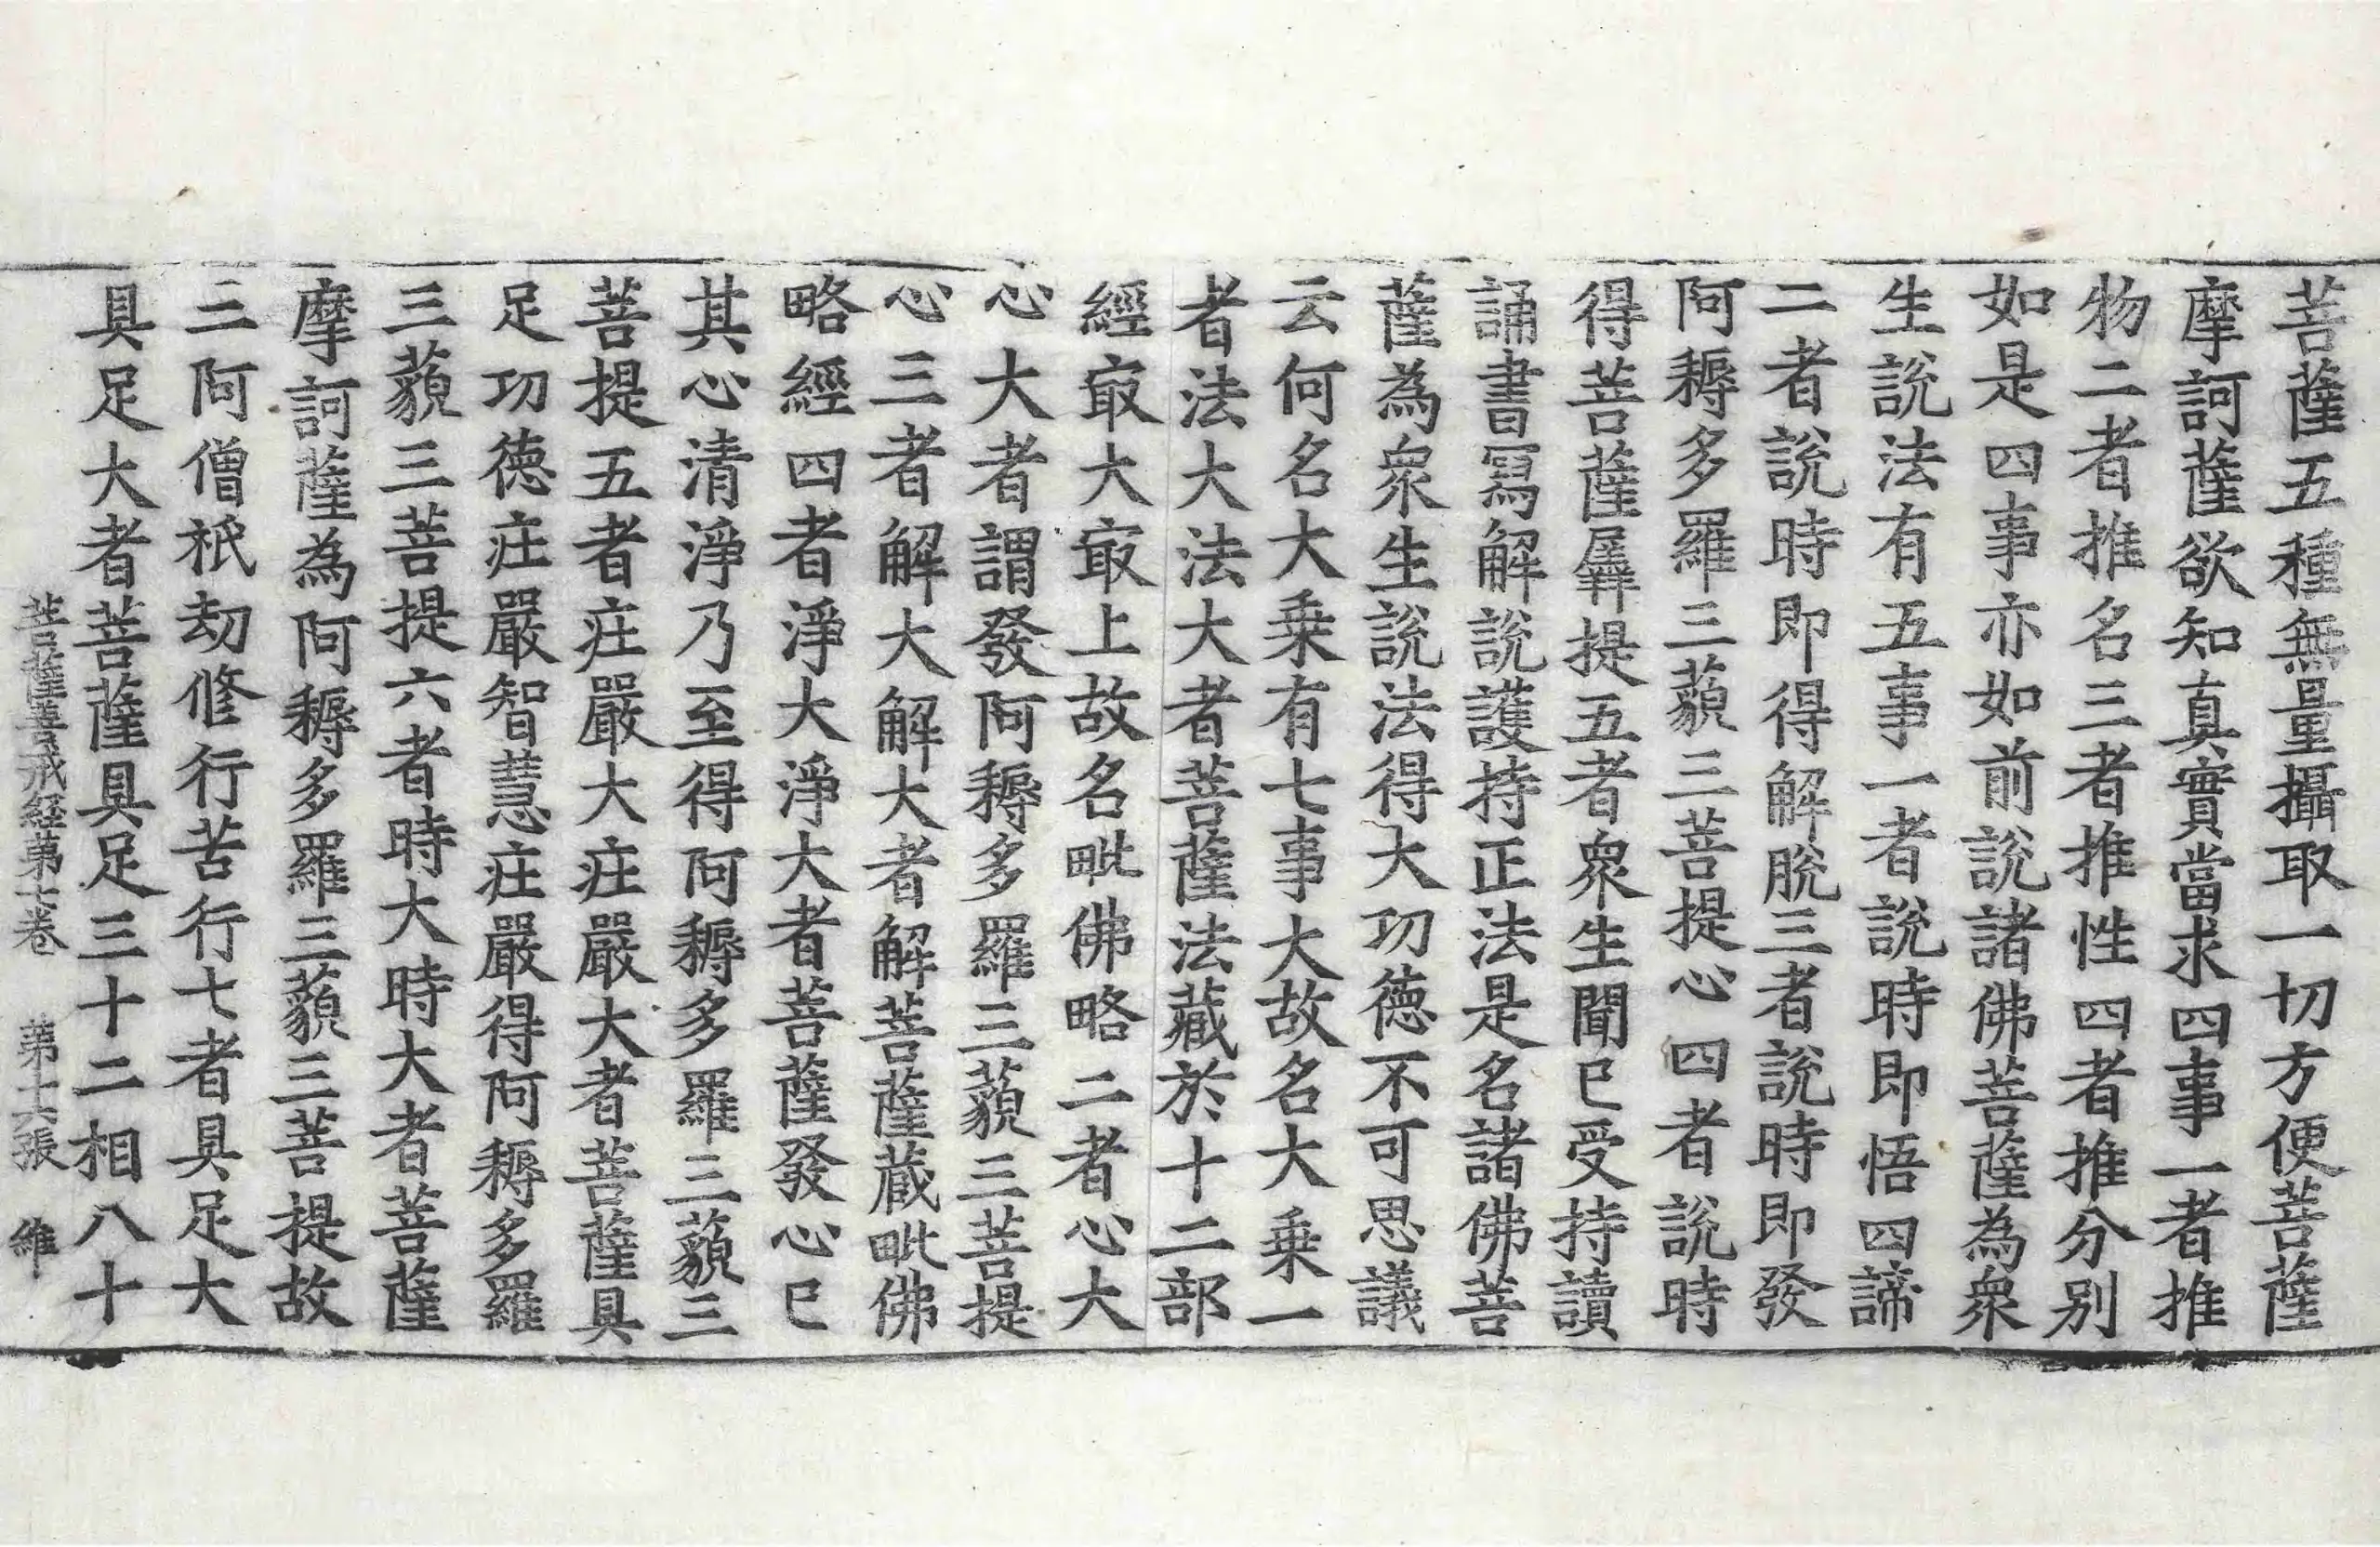 菩薩五種無量攝取一切方便菩薩
摩訶薩欲知真實當求四事一者推
物二者推名三者推性四者推分别
如是四事亦如前說諸佛菩薩為衆
生說法有五事一者說時即悟四諦
二者說時即得解脫三者說時即發
阿耨多羅三藐三菩提心四者說時
得菩薩羼提五者衆生聞已受持讀
誦書寫解說護持正法是名諸佛菩
薩為衆生說法得大功德不可思議
云何名大乗有七事大故名大乗一
者法大法大者菩薩法藏於十二部
經㝡大㝡上故名毗佛略二者心大
心大者謂發阿耨多羅三藐三菩提
心三者解大解大者解菩薩蔵毗佛
略經四者淨大淨大者菩薩發心已
其心清淨乃至得阿耨多羅三藐三
菩提五者庄嚴大庄嚴大者菩薩具
足功德庄嚴智慧庄嚴得阿耨多羅
三藐三菩提六者時大時大者菩薩
摩訶薩為阿耨多羅三藐三菩提故
三阿僧祇劫修行苦行七者具足大
具足大者菩薩具足三十二相八十
菩薩善戒經第七卷 第十六張 維